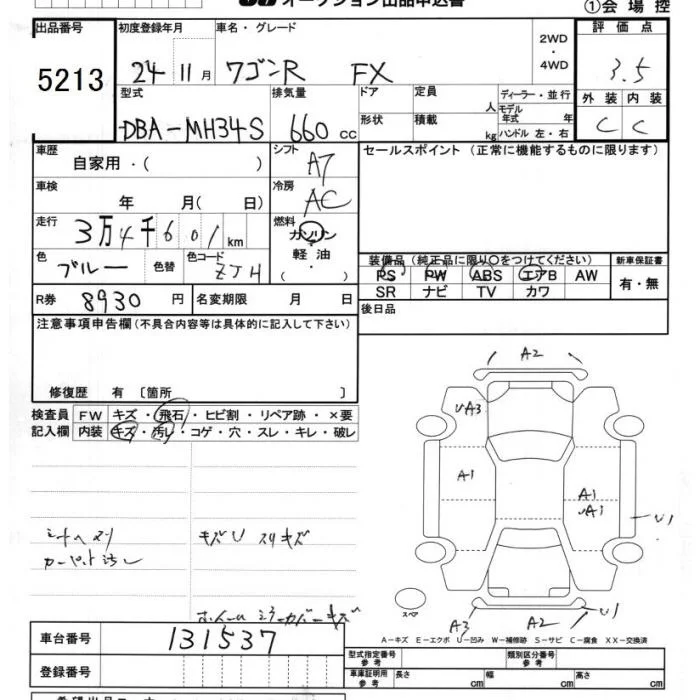 オークション出品申込書 ①会場控
出品番号 初度登録年月 車名・グレード 2WD・4WD 評価点
5213 24 11月 ワゴンR FX 3.5
型式 排気量 ドア 定員 人 ディーラー・並行 外装 内装
DBA-MH34S 660 cc 形状 積載 kg モデル年式 年 ハンドル 左・右 C C
車歴 自家用・( ) シフト AT セールスポイント(正常に機能するものに限ります)
車検 年 月( 日) 冷房 AC
走行 3万4千601km 燃料 ガソリン・軽油・( )
色 ブルー 色替 色コード ZJH
装備品(純正品に限り○をつけてください) 新車保証書
PS PW ABS エアB AW 有・無
SR ナビ TV カワ
R券 8930円 名変期限 月 日 後日品
注意事項申告欄(不具合内容等は具体的に記入して下さい)
修復歴 有〔箇所 〕
検査員 FW キズ・飛石・ヒビ割・リペア跡・×要
記入欄 内装 キズ・汚レ・コゲ・穴・スレ・キレ・破レ
A2
UA3
A1
A1
UA1
U1
カーペット汚レ キズU スリキズ
ホイールミラーカバーキズ
スペア
A3 A2 U1
A-キズ E-エクボ U-凹み W-補修跡 S-サビ C-腐食 XX-交換済
車台番号 131537 型式指定番号 参考 類別区分番号 参考
登録番号 車庫証明用 参考 長さ cm 幅 cm 高さ cm